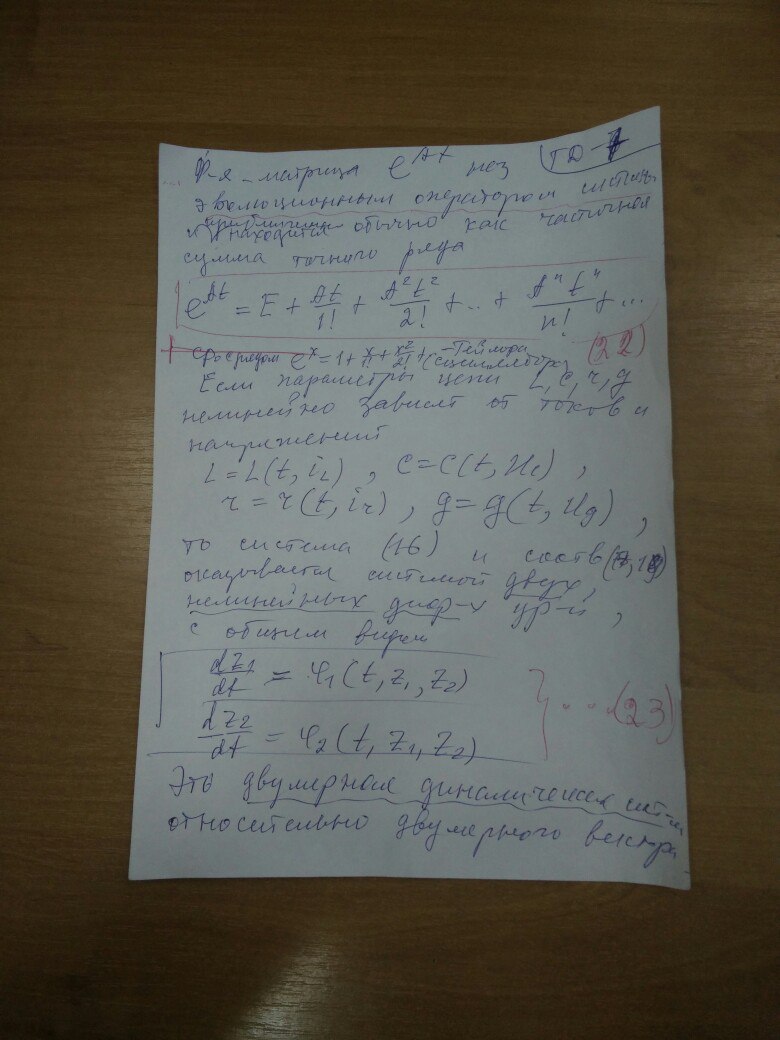 Ф-я-матрица e^{At} наз TD-7
эволюционным оператором системы
и приближенно находится обычно как частичная
сумма точного ряда
e^{At} = E + At/1! + A²t²/2! + .. + Aⁿtⁿ/n! + ...
(22)
Ср с рядом e^x = 1 + x/1! + x²/2! + - Тейлора
Если параметры цепи L, C, r, g
нелинейно зависят от токов и
напряжений
L = L(t, i_L) , C = C(t, U_C) ,
r = r(t, i_r) , g = g(t, U_g) ,
то система (16) и соотв
оказывается системой двух,
нелинейных диф-х ур-й,
с общим видом
dz₁/dt = φ₁(t, z₁, z₂)
... (23)
dz₂/dt = φ₂(t, z₁, z₂)
Это двумерная динамическая сист-а
относительно двумерного вектора